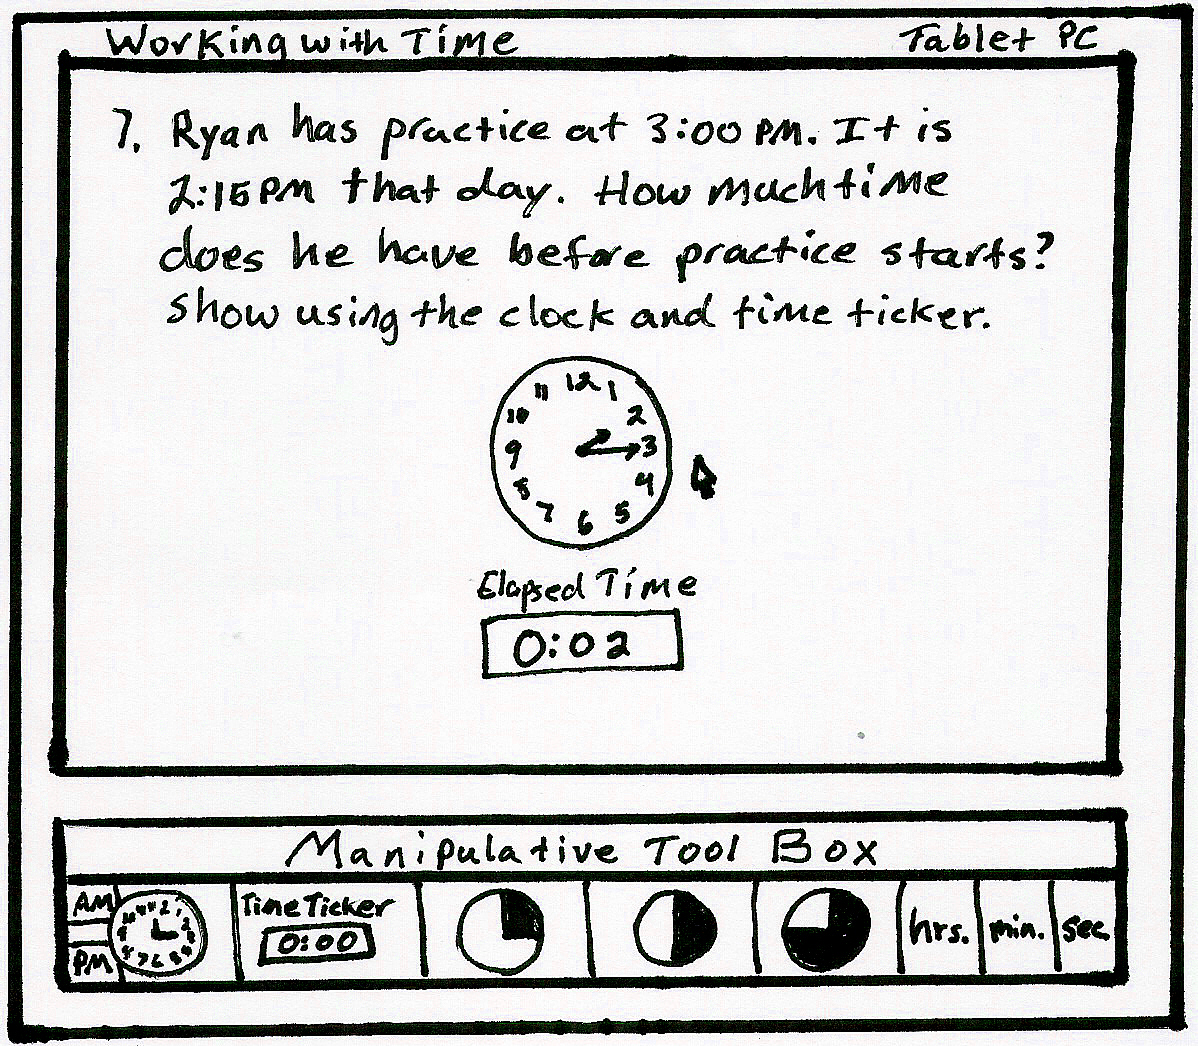 Working with Time
Tablet PC
7. Ryan has practice at 3:00 PM. It is
2:15PM that day. How much time
does he have before practice starts?
Show using the clock and time ticker.
12
11 1
10 2
9 3
8 4
7 5
6
Elapsed Time
0:02
Manipulative Tool Box
AM
PM
Time Ticker
0:00
hrs.
min.
sec.